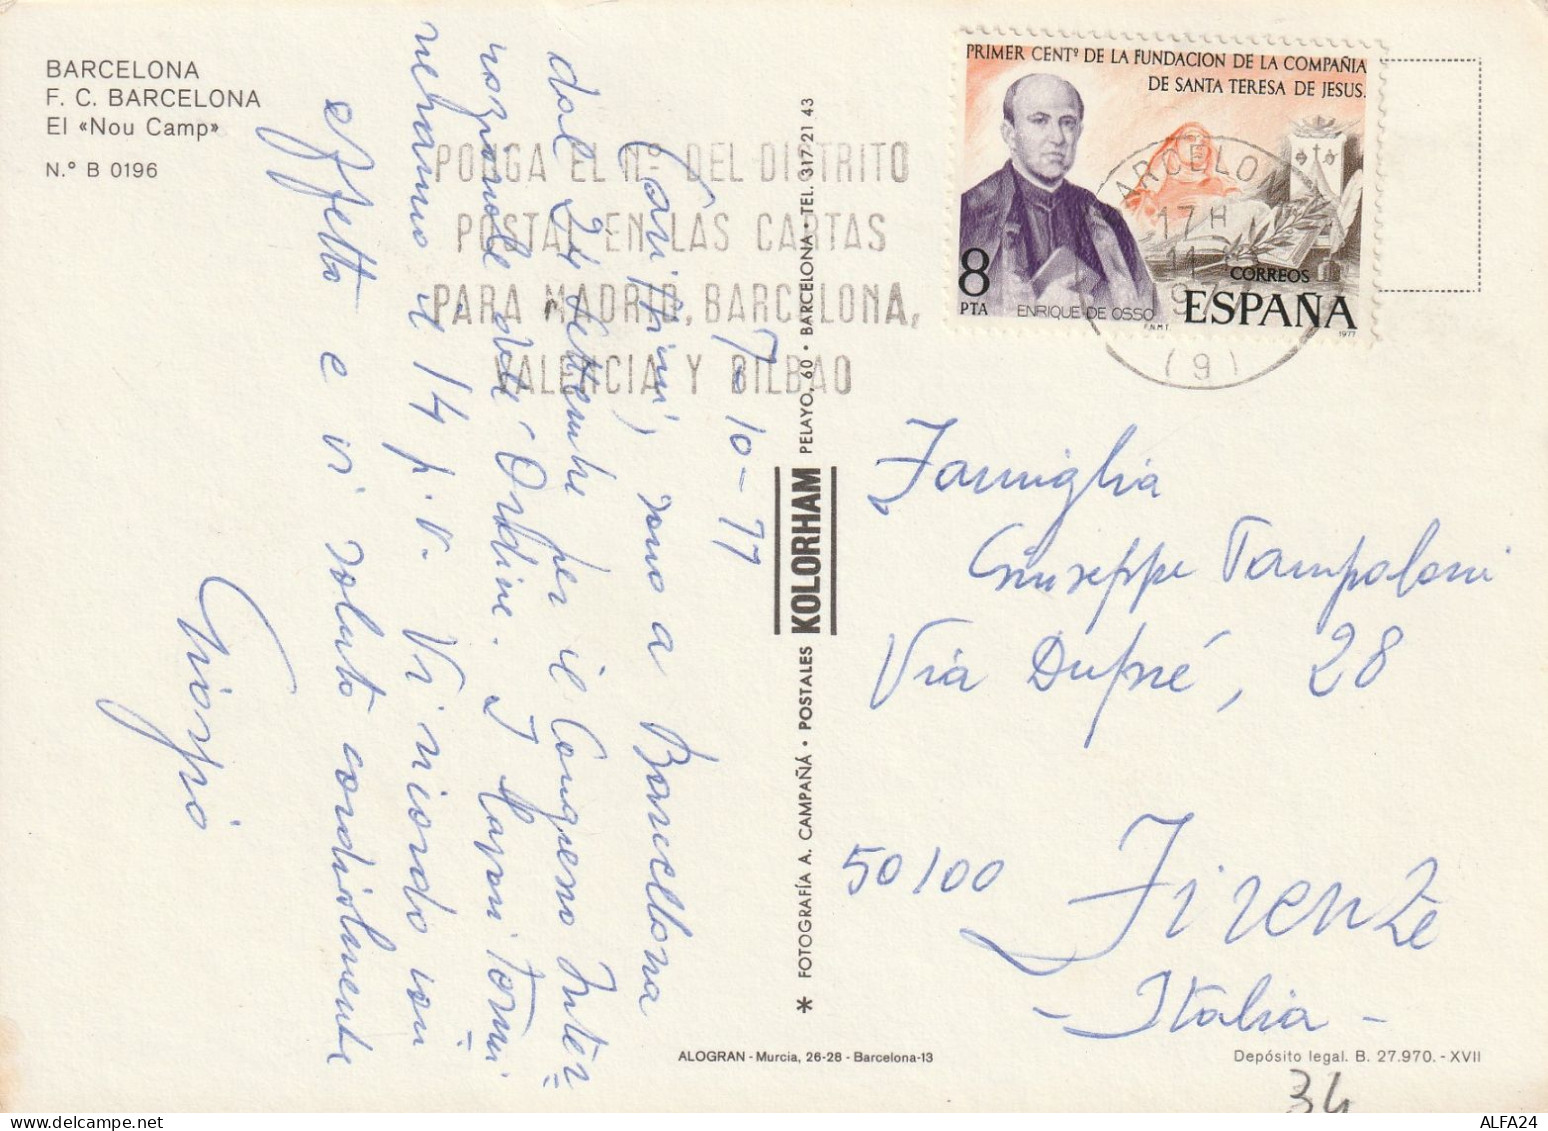 BARCELONA
F. C. BARCELONA
El «Nou Camp»
N.° B 0196
PONGA EL Nº DEL DISTRITO
POSTAL EN LAS CARTAS
PARA MADRID, BARCELONA,
VALENCIA Y BILBAO
PRIMER CENTº DE LA FUNDACION DE LA COMPAÑIA
DE SANTA TERESA DE JESUS.
8
PTA
ENRIQUE DE OSSO
CORREOS
ESPAÑA
F.N.M.T.
1977
BARCELONA
17H
11
97
(9)
7-10-77
Cari, sono a Barcellona
dal 24 settembre per il Congresso Inter=
nazionale Ordine. I Capi Torni=
il 14 p.v. Vi ricordo con
affetto e vi saluto cordialmente
Giorgio
* FOTOGRAFÍA A. CAMPAÑÁ · POSTALES KOLORHAM PELAYO, 60 · BARCELONA · TEL. 317 21 43
Famiglia
Giuseppe Tampoloni
Via Dupré, 28
50100 Firenze
- Italia -
ALOGRAN - Murcia, 26-28 - Barcelona-13
Depósito legal. B. 27.970. - XVII
34
ALFA24